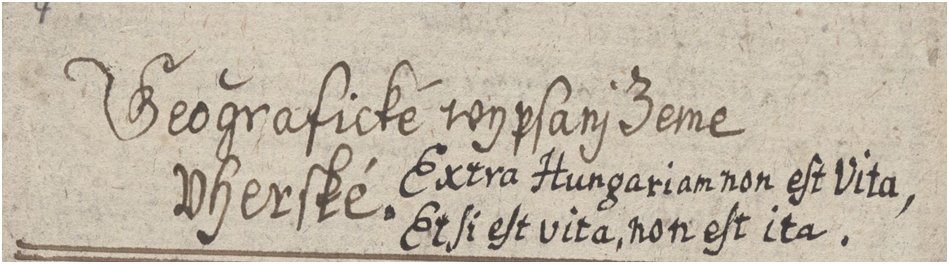 Geoǧrafické wypsanj Zeme
Vherské. Extra Hungariam non est Vita,
Et si est vita, non est ita.